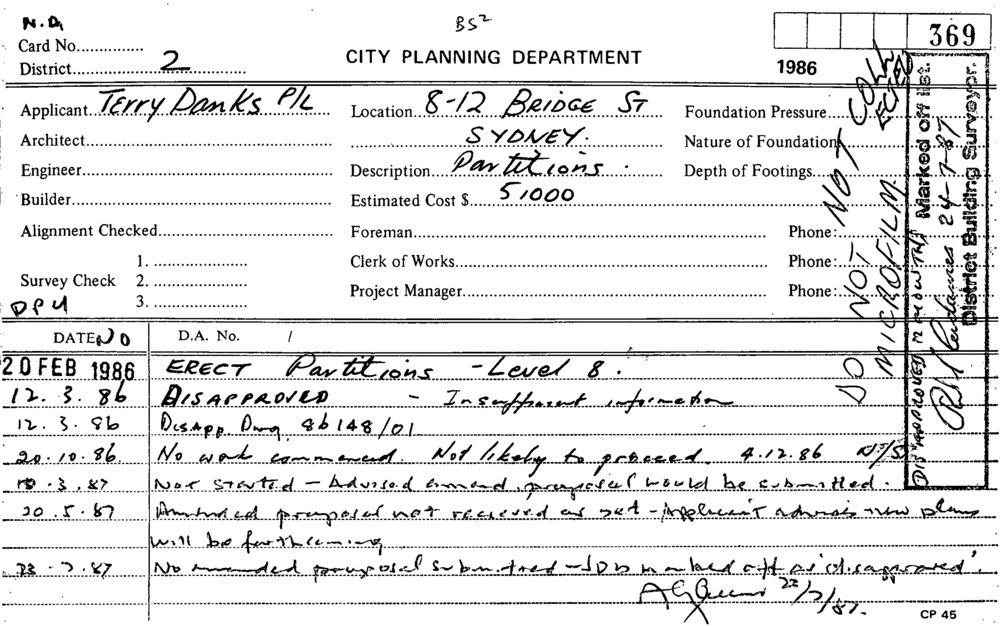 N.D, BS²
369
Card No...............
CITY PLANNING DEPARTMENT
1986
District 2
Applicant Terry Danks P/L Location 8-12 BRIDGE ST Foundation Pressure
Architect SYDNEY. Nature of Foundation
Engineer Description Partitions. Depth of Footings
Builder Estimated Cost $ 51000
Alignment Checked Foreman Phone:
1. Clerk of Works Phone:
Survey Check 2.
Project Manager Phone:
DPU 3.
DATE NO D.A. No. /
20 FEB 1986 ERECT Partitions - Level 8.
12. 3. 86 DISAPPROVED - Insufficient information
12. 3. 86 Disapp. Dwg 86148/01
20.10.86. No work commenced. Not likely to proceed. 4.12.86 N/S
.3.87 Not started - Advised amend. proposal would be submitted.
20.5.87 Amended proposal not recieved as yet - Applicant advises new plans
will be forthcoming
23-7.87 No amended proposal submitted - marked off as 'disapproved'.
23/7/87.
CP 45
DO NOT
MICROFILM
DISAPPROVED
Marked off list.
24-7-87
District Building Surveyor.